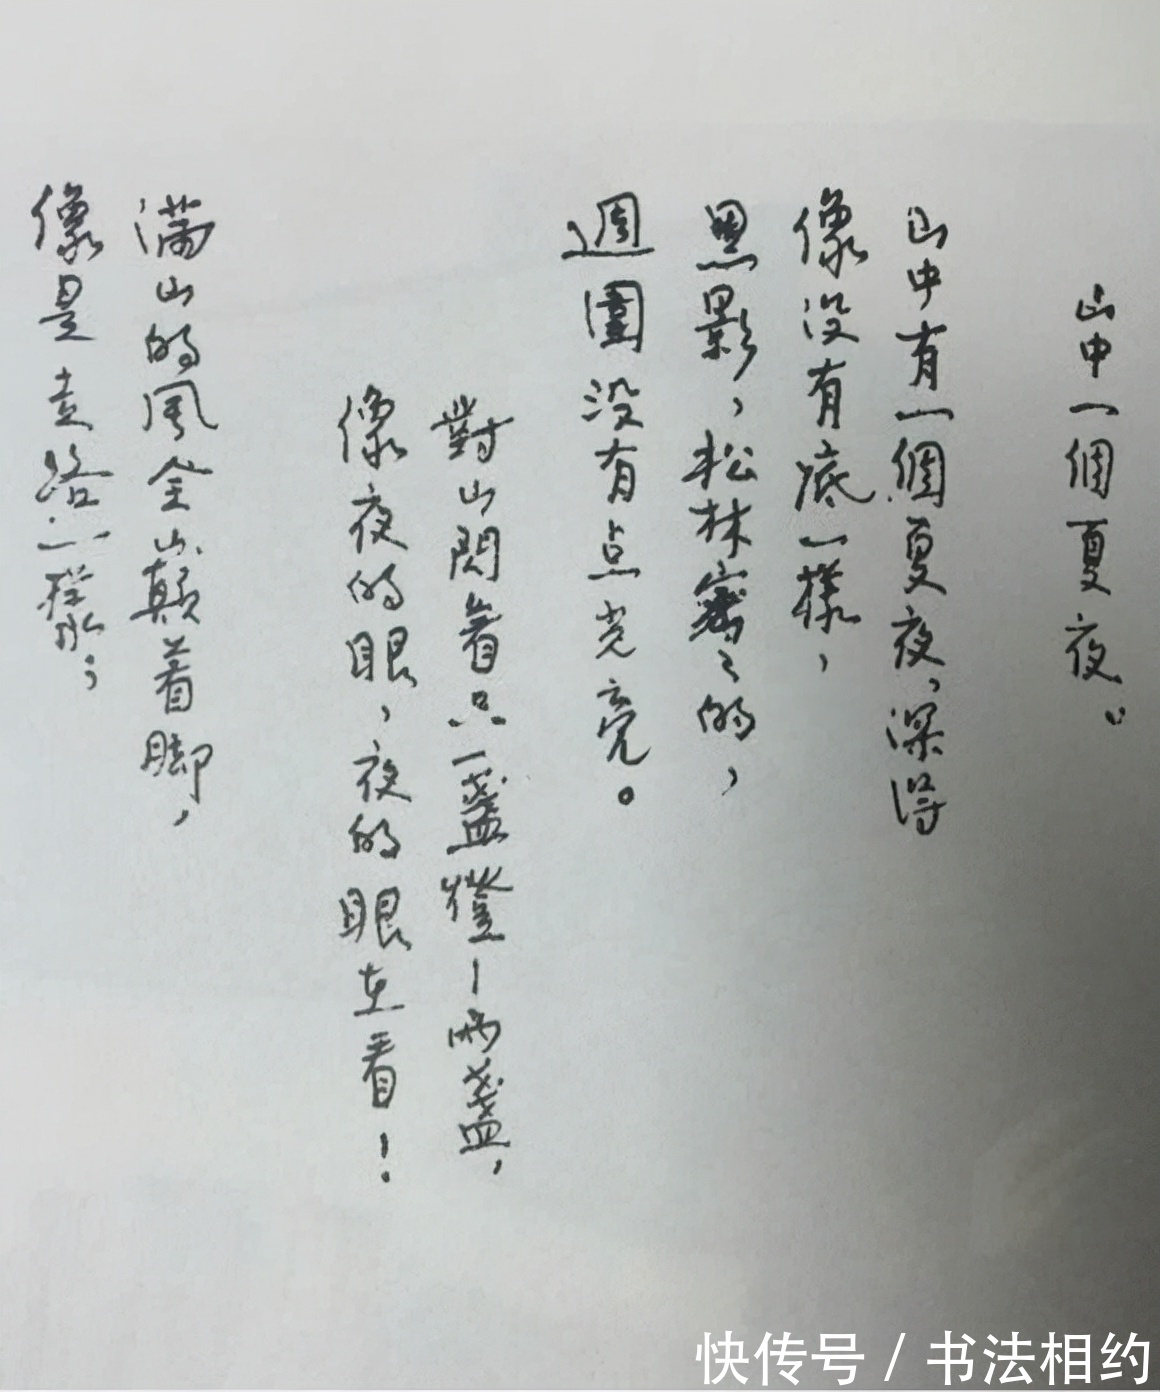 山中一個夏夜。
山中有一個夏夜，深得
像没有底一樣，
黑影，松林密々的，
週圍没有点光亮。
對山閃着只一盞燈—两盞，
像夜的眼，夜的眼在看！
滿山的風全山顛着脚，
像是走路一樣；
快传号 / 书法相约